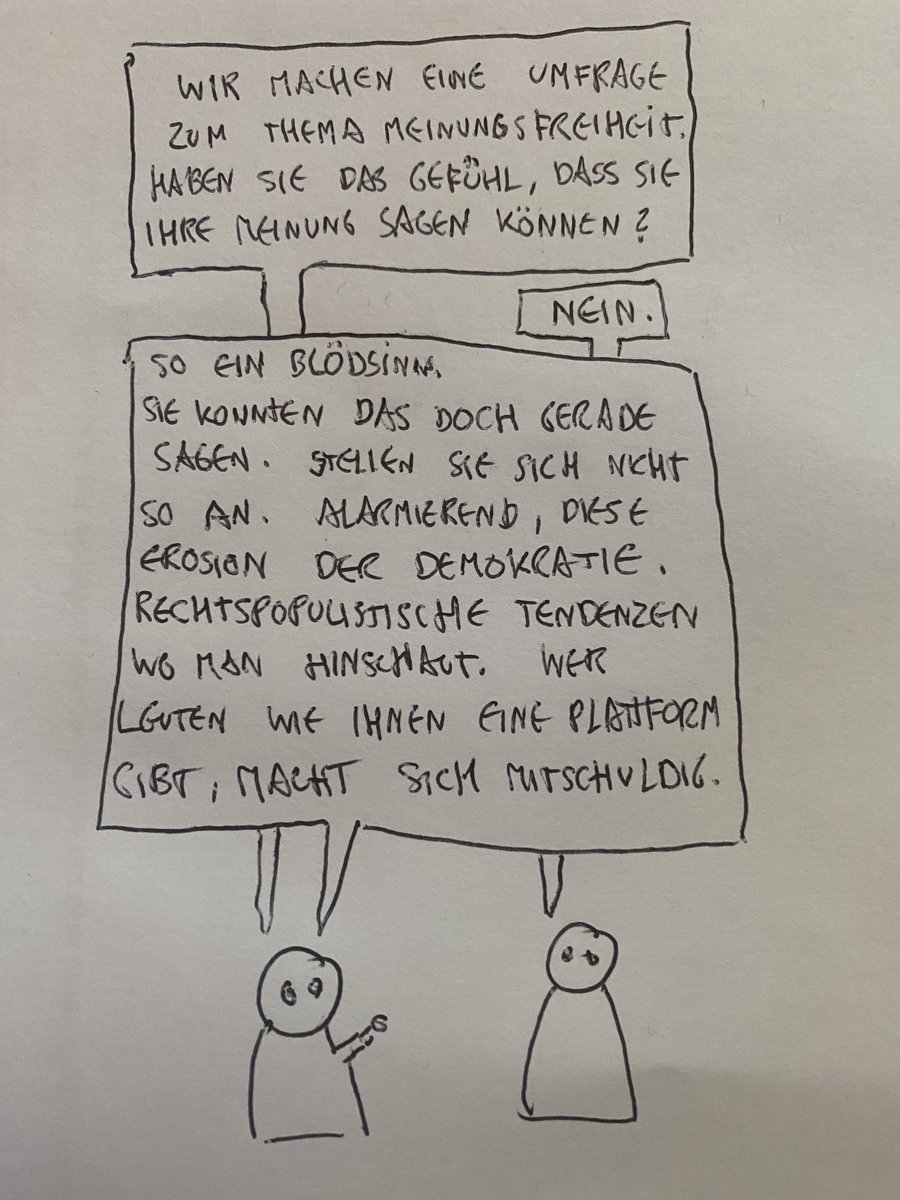 WIR MACHEN EINE UMFRAGE
ZUM THEMA MEINUNGSFREIHEIT.
HABEN SIE DAS GEFÜHL, DASS SIE
IHRE MEINUNG SAGEN KÖNNEN?
NEIN.
SO EIN BLÖDSINN.
SIE KONNTEN DAS DOCH GERADE
SAGEN. STELLEN SIE SICH NICHT
SO AN. ALARMIEREND, DIESE
EROSION DER DEMOKRATIE.
RECHTSPOPULISTISCHE TENDENZEN
WO MAN HINSCHAUT. WER
LEUTEN WIE IHNEN EINE PLATTFORM
GIBT, MACHT SICH MITSCHULDIG.